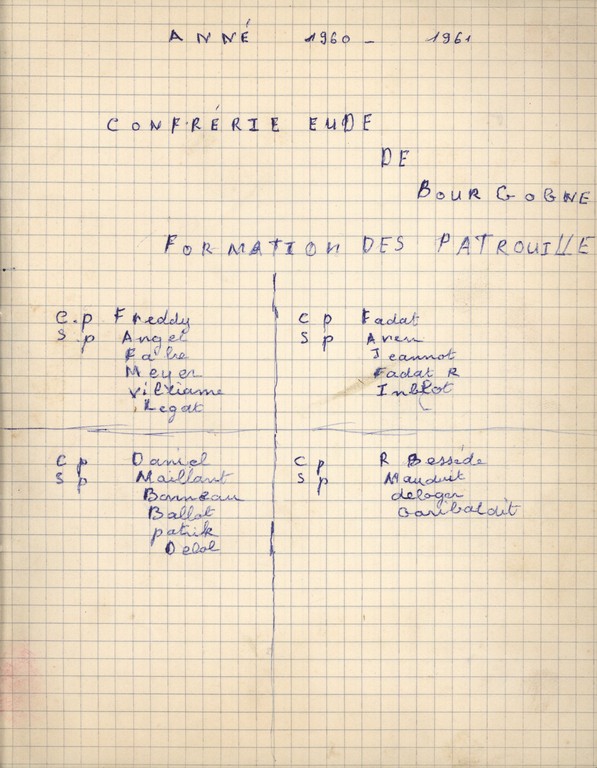 ANNÉ 1960 - 1961
CONFRÉRIE EUDE
DE
BOURGOGNE
FORMATION DES PATROUILLE
C.p Freddy
S.p Angel
Fabre
Meyer
Legat
C p Fadat
S p
Jeannot
Fadat R
C p Daniel
S p Maillant
Ballot
patrik
C p R Bessède
S p Mauduit
deloger
Garibaldit